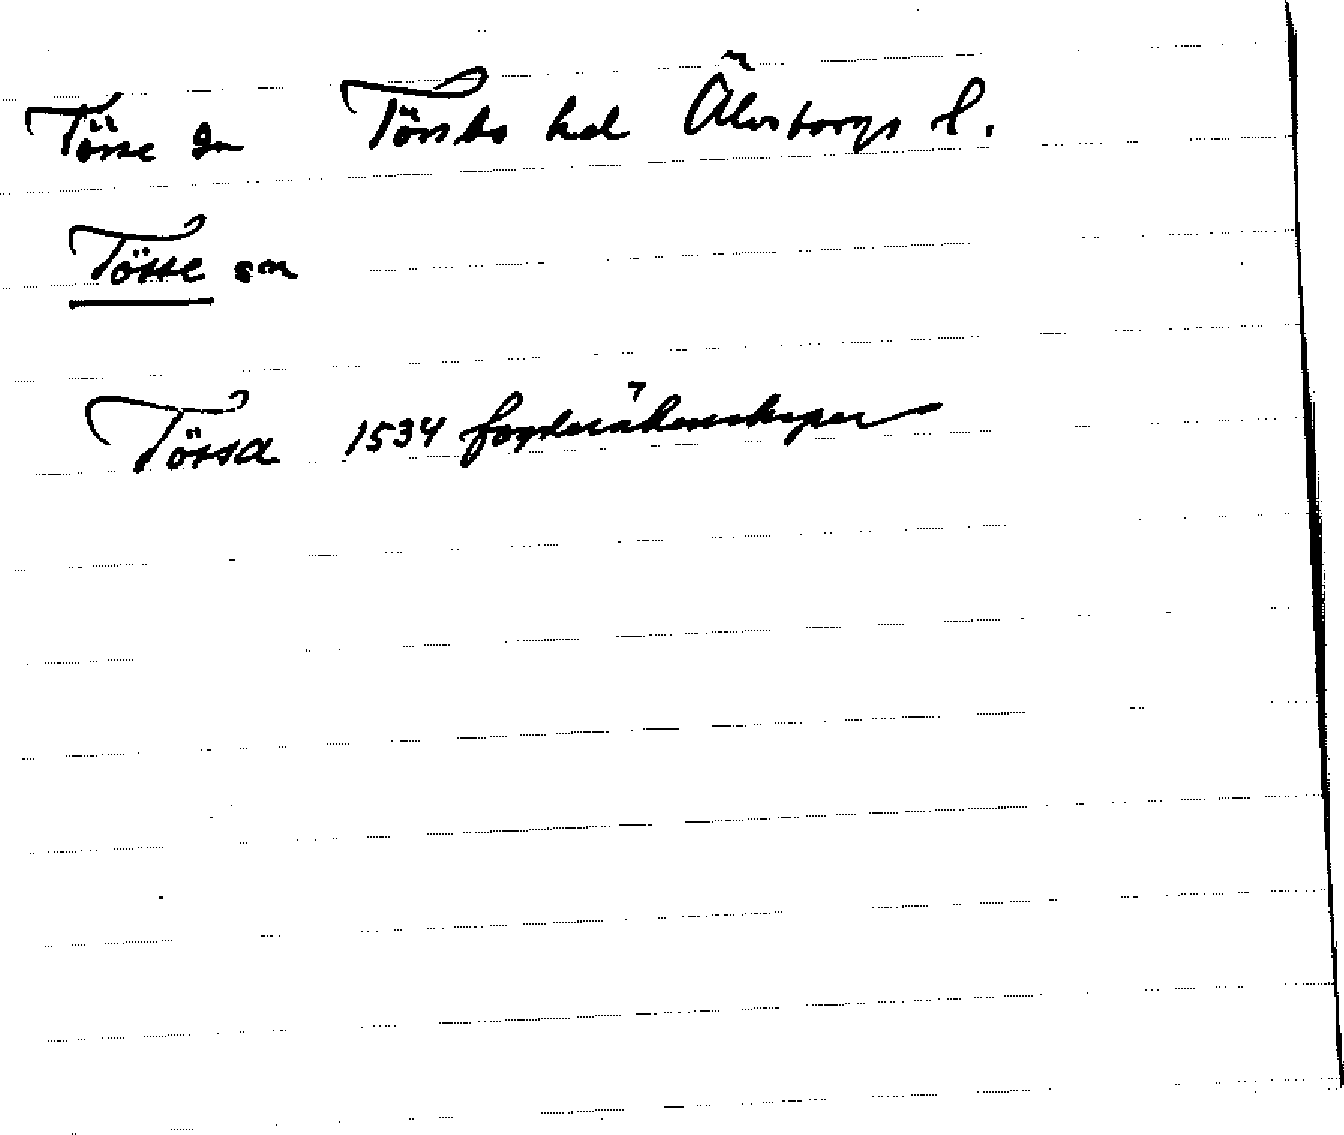 Tösse sn Tössbo hd Älvsborgs l.
Tösse sn
Tössa 1534 fogderäkenskaper